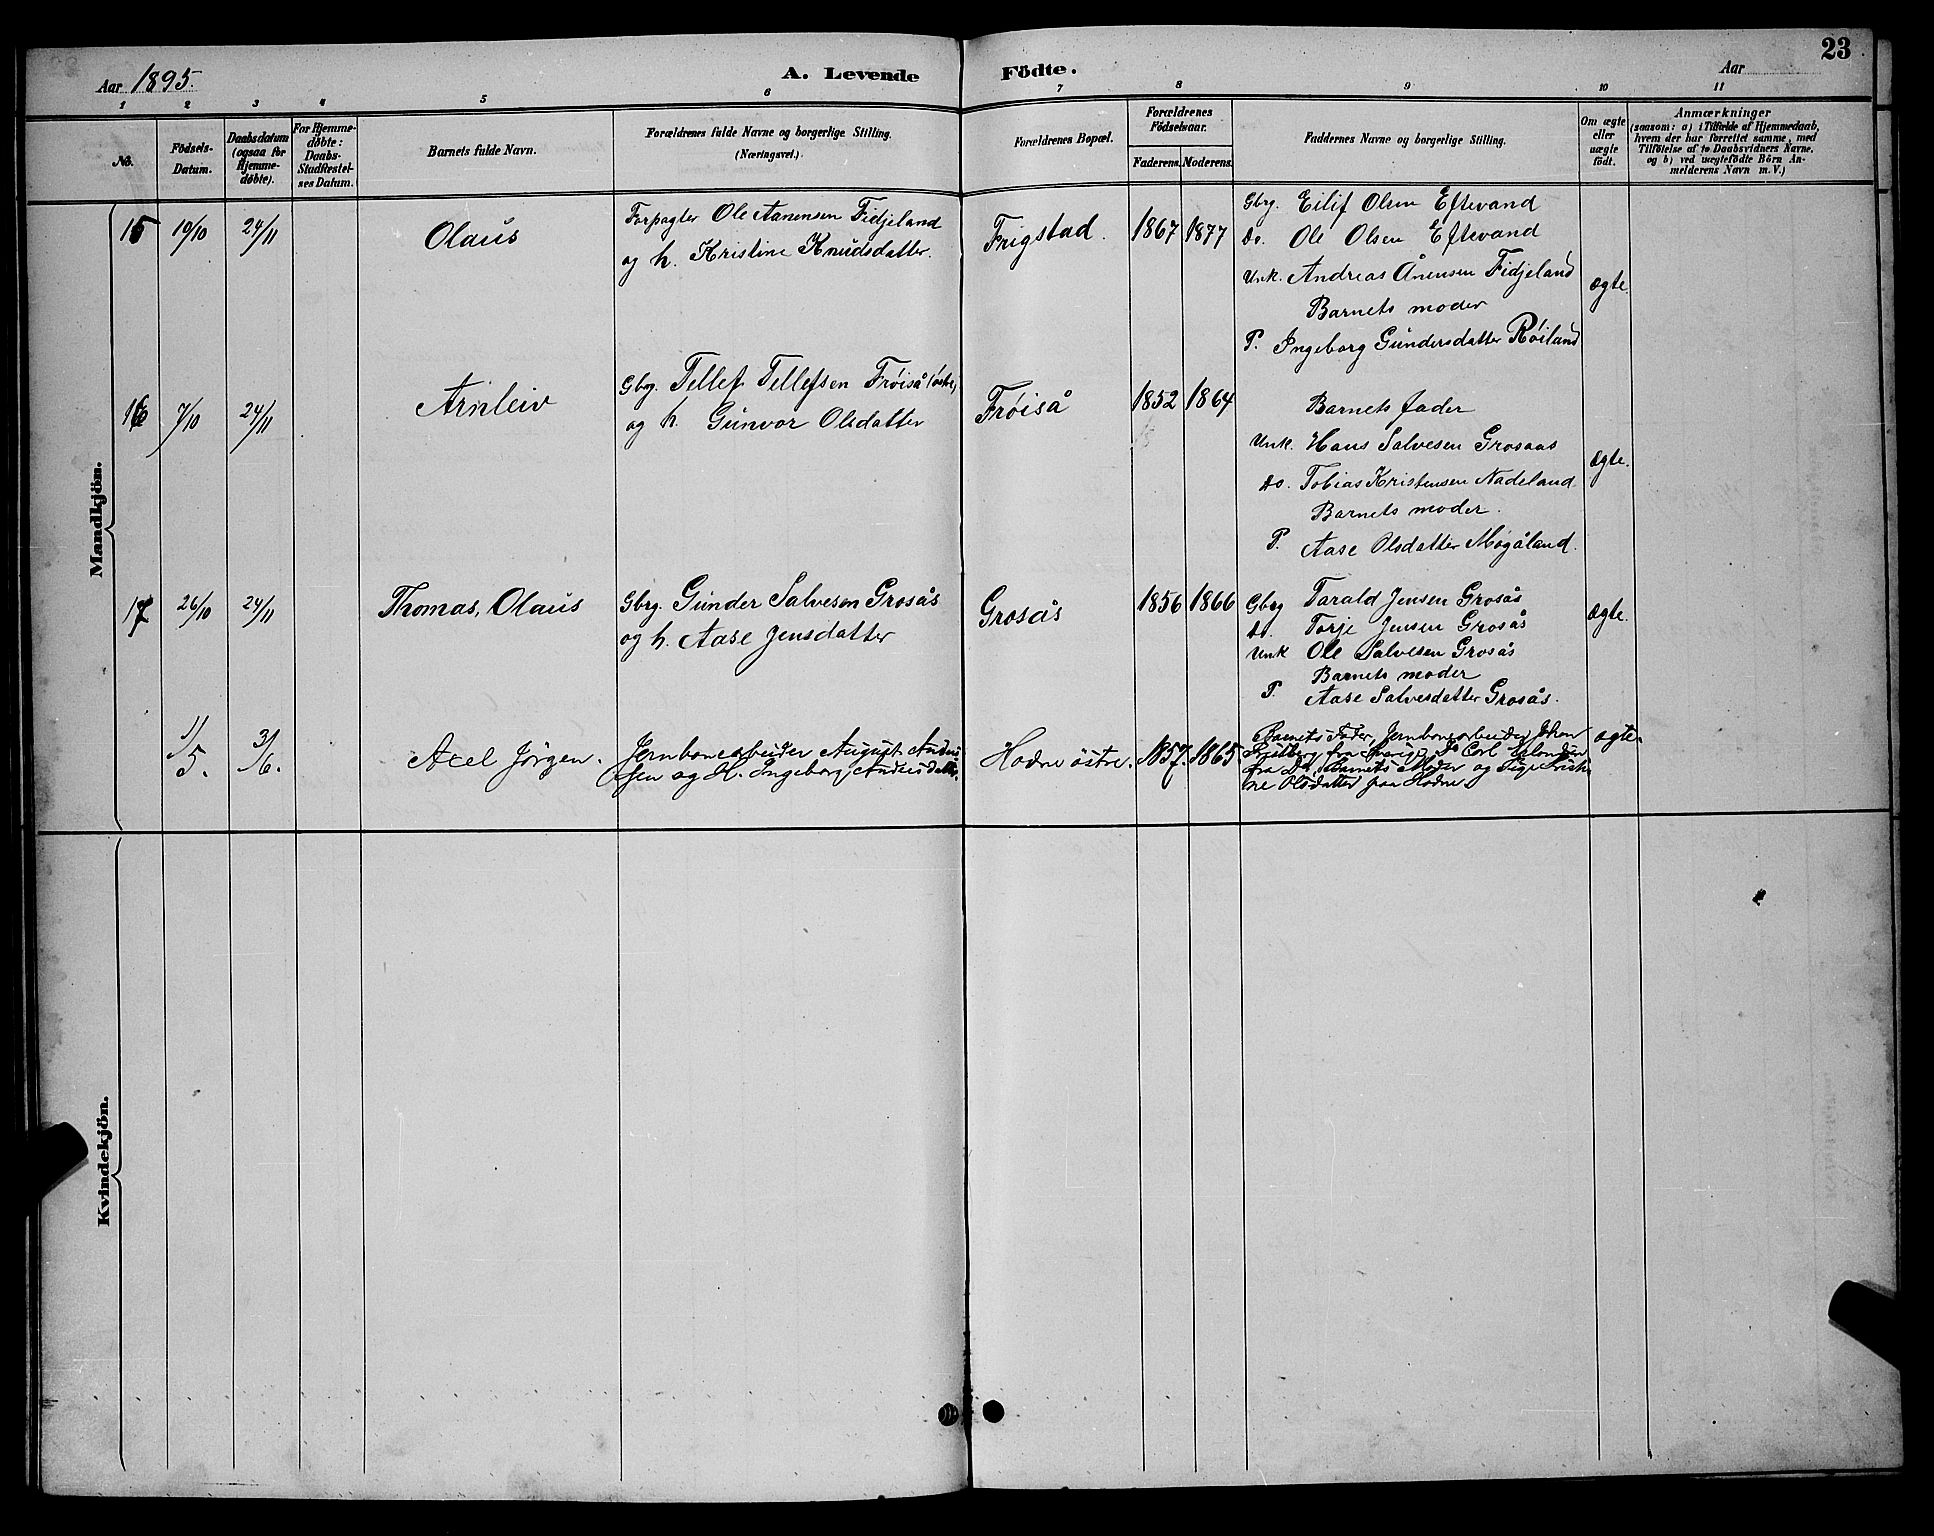 Aar 1895.
A. Levende Födte.
Aar
23
1 2 3 4 5 6 7 8 9 10 11
No.
Födsels-Datum.
Daabsdatum (ogsaa for Hjemme-døbte).
For Hjemme-døbte: Daabs-Stadfæstel-ses Datum.
Barnets fulde Navn.
Forældrenes fulde Navne og borgerlige Stilling.
(Næringsvei.)
Forældrenes Bopæl.
Forældrenes Fødselsaar.
Faderens. Moderens.
Faddernes Navne og borgerlige Stilling.
Om ægte eller uægte født.
Anmærkninger
(saasom: a) i Tilfælde af Hjemmedaab,
hvem der har forrettet samme, med
Tilføielse af to Daabsvidners Navne.
og b) ved uægtefødte Börn An-
melderens Navn m.V.)
Mandkjön.
15 19/10 24/11 Olaus
Forpagter Ole Aanensen Fidjeland
og h. Kristine Knudsdatter.
Frigstad. 1867 1877
Gbrg. Eilif Olsen Eftevand
Do. Ole Olsen Eftevand
Unk. Andreas Ånensen Fidjeland
Barnets moder
P. Ingeborg Gundersdatter Røiland
ægte.
16 7/10 24/11 Arnleiv
Gbrg. Tellef Tellefsen Frøiså (østre)
og h. Gunvor Olsdatter
Frøiså 1852 1864
Barnets fader
Unk. Hans Salvesen Grosaas
Do. Tobias Kristensen Nadeland
Barnets moder.
P. Aase Olsdatter Magåland.
Ægte.
17 26/10 24/11 Thomas, Olaus
Gbrg. Gunder Salvesen Grosås
og h. Aase Jensdatter
Grosås 1856 1866
Gbrg Tarald Jensen Grosås
Do. Torje Jensen Grosås
Unk Ole Salvesen Grosås
Barnets moder
P. Aase Salvesdatter Grosås.
Ægte.
1/5. 3/6. Axel Jörgen.
Jernbanearbeider August Andrea
sen og H. Ingeborg Andersdatter.
Hodne östre. 1857. 1865
Barnets Fader, Jernbanearbeider Johan
fra Sverig, Do Carl
fra Do, Barnets Moder og Pige Kristi
ne Olsdatter fra Hodne
ægte
Kvindekjön.